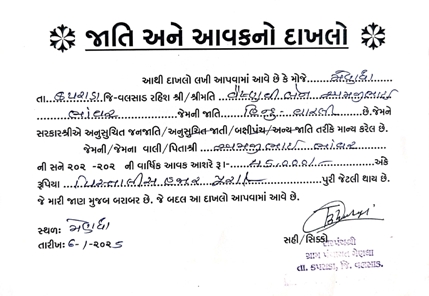 જાતિ અને આવકનો દાખલો
આથી દાખલો લખી આપવામાં આવે છે કે મોજે મેણધા
તા. કપરાડા જિ-વલસાડ રહિશ શ્રી/શ્રીમતિ
જેમની જાતિ હિન્દુ- વારલી છે. જેમને
સરકારશ્રીએ અનુસુચિત જનજાતિ/અનુસુચિત-જાતી/બક્ષીપંચ/અન્ય-જાતિ તરીકે માન્ય કરેલ છે.
જેમની/જેમના વાલી/પિતાશ્રી
ની સને ૨૦૨ -૨૦૨ ની વાર્ષિક આવક આશરે રૂા- ૪૫૦૦૦/- અંકે
રૂપિયા પિસ્તાલીસ હજાર પુરા પુરી જેટલી થાય છે.
જે મારી જાણ મુજબ બરાબર છે. જે બદલ આ દાખલો આપવામાં આવે છે.
સ્થળ: મેણધા
તારીખ: ૬-૧-૨૦૨૫
સહી/સિક્કો
સરપંચશ્રી
ગ્રામ પંચાયત મેણધા
તા. કપરાડા, જિ. વલસાડ.